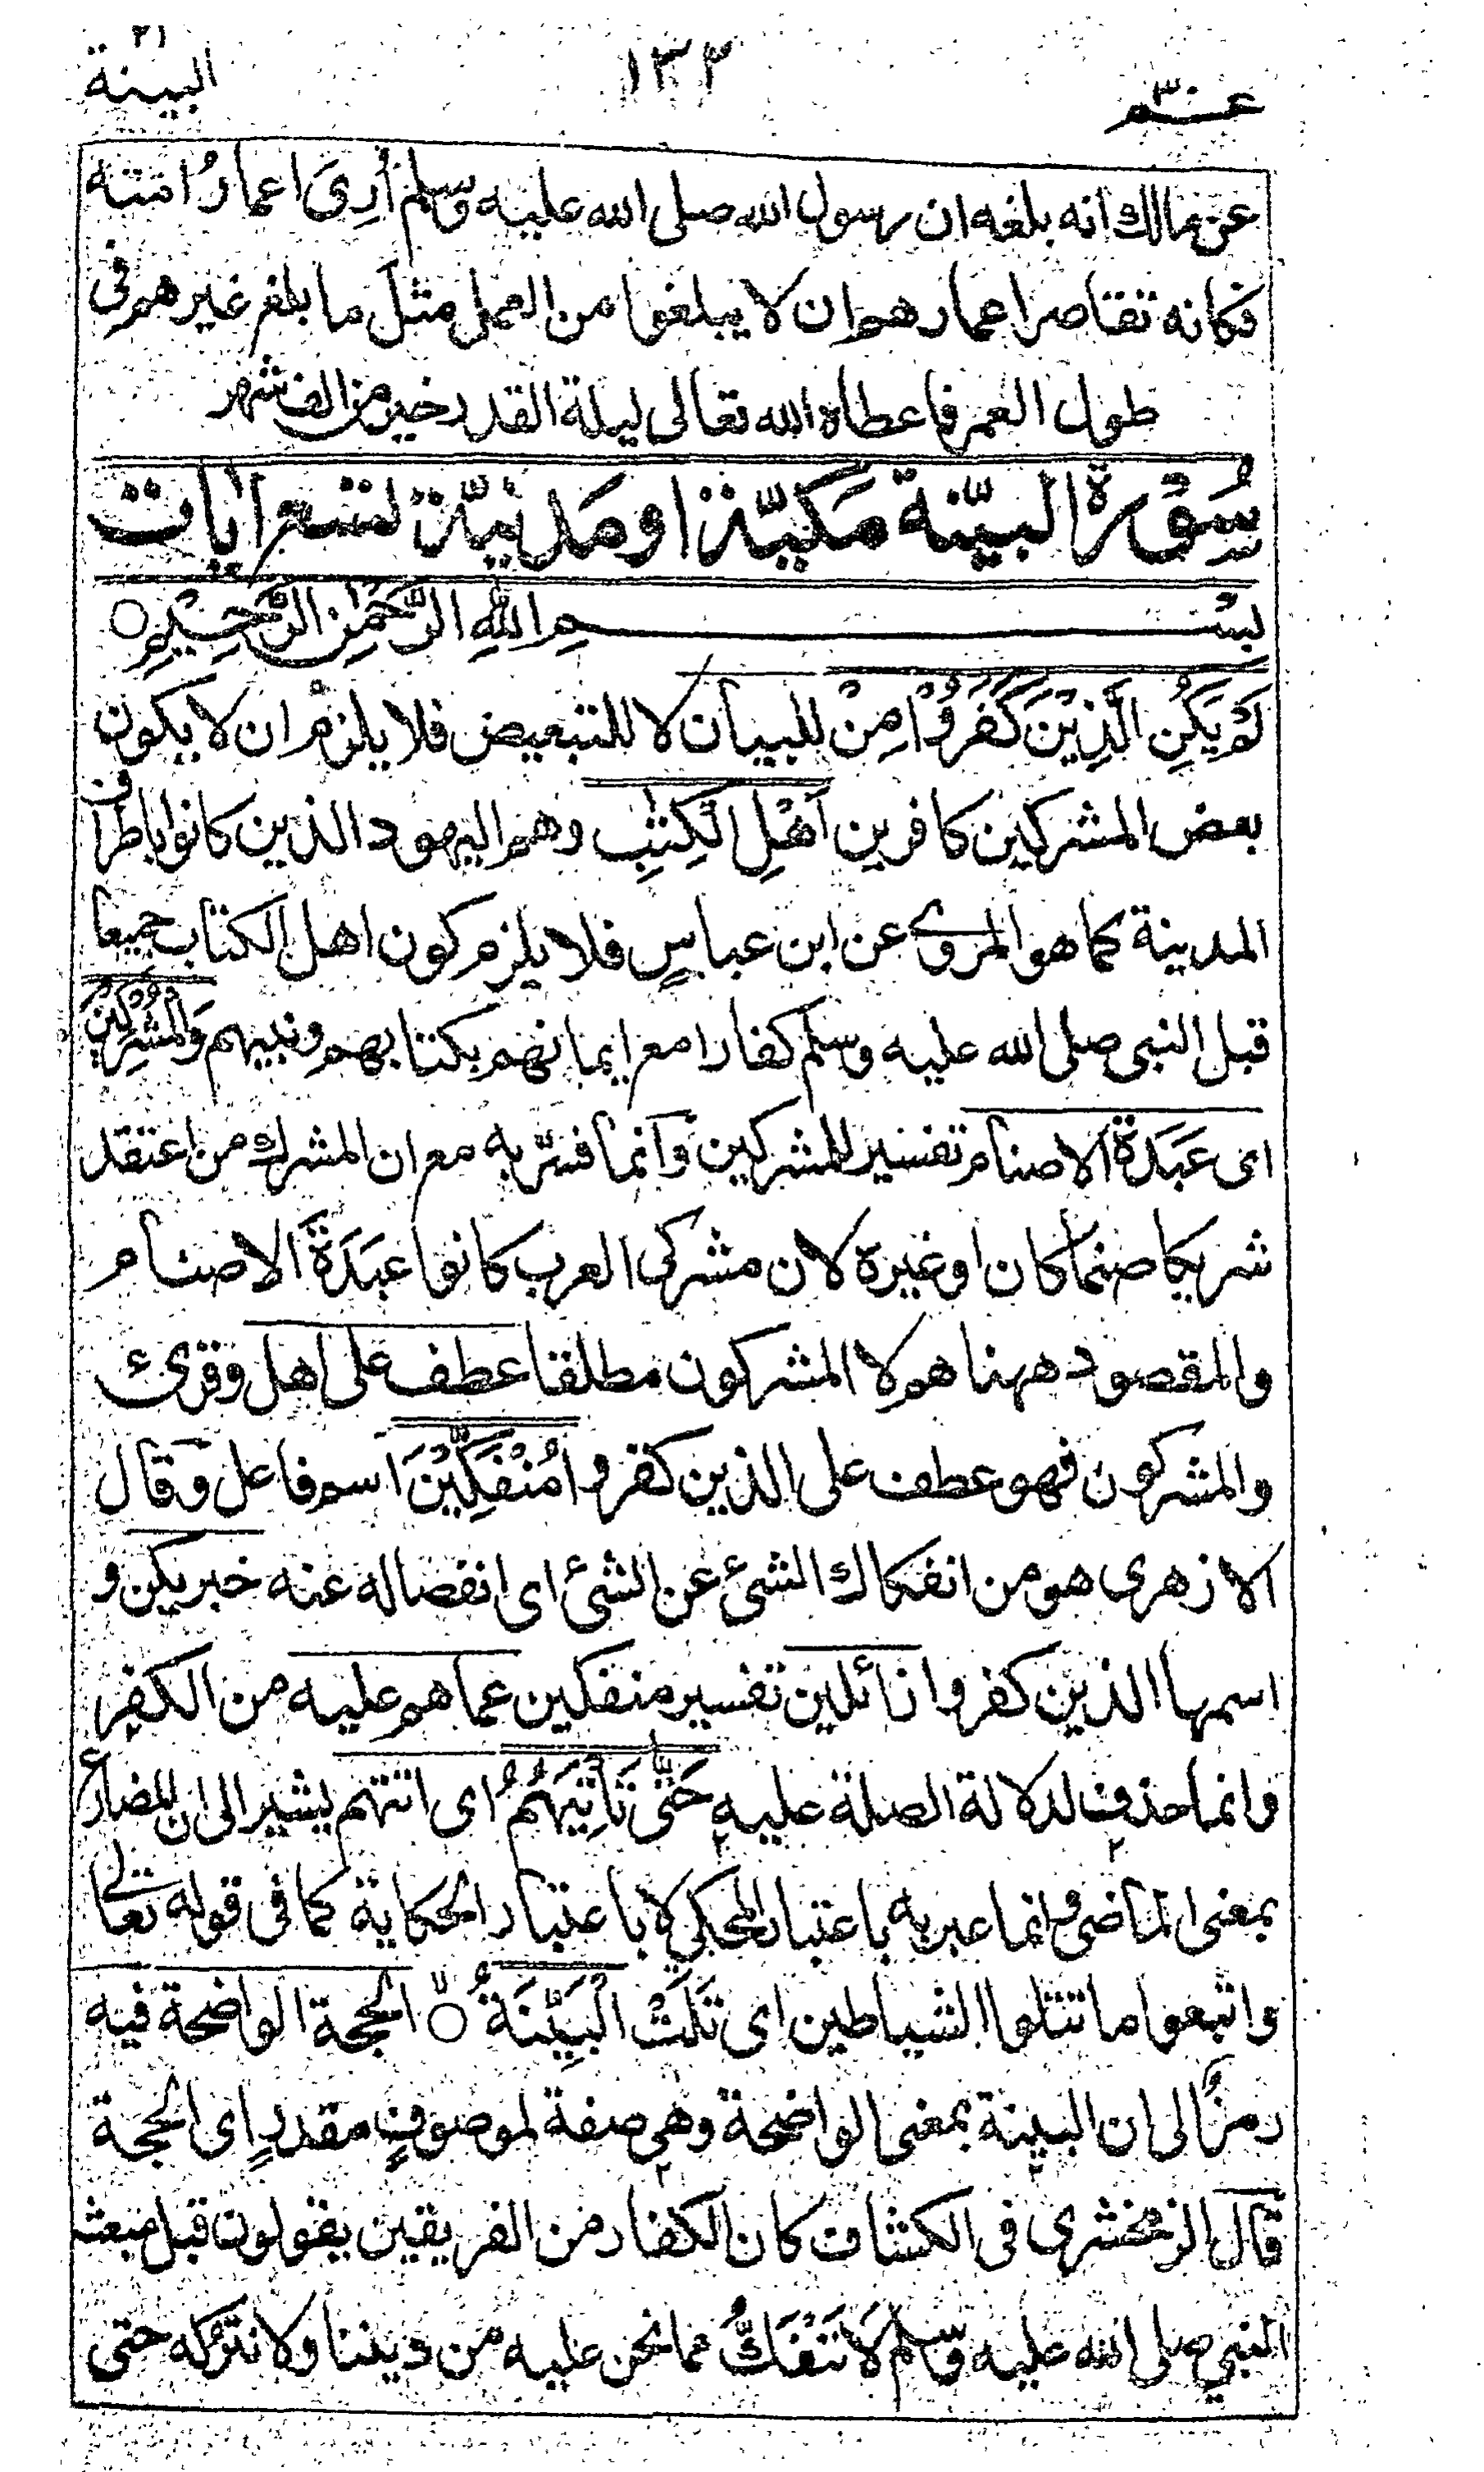 البينة ٢١
١٣٣
عـم ٣٠
عن مالك انه بلغه ان رسول الله صلى الله عليه وسلم أُرِىَ اعمارُ امته
فكانه تقاصر اعمارهم ان لا يبلغوا من العمل مثلَ ما بلغ غيرهم فى
طول العمر فاعطاه الله تعالى ليلة القدر خير من الف شهر
سُوْرة البيّنة مَكيّة او مَدنيّة تسع اٰيات
بِسْمِ اللّٰهِ الرَّحْمٰنِ الرَّحِيْمِ ○
لَمْ يَكُنِ الَّذِيْنَ كَفَرُوْا مِنْ للبيان لا للتبعيض فلا يلزم ان لا يكون
بعض المشركين كافرين اَهْلِ الْكِتٰبِ وهم اليهود الذين كانوا باطراف
المدينة كما هو المروى عن ابن عباسٍ فلا يلزم كون اهل الكتاب جميعا
قبل النبى صلى الله عليه وسلم كفارا مع ايمانهم بكتابهم ونبيهم وَالْمُشْرِكِيْنَ
اى عَبَدَة الاصنام تفسير للمشركين وانما فسّر به مع ان المشرك من اعتقد
شريكا صنما كان او غيره لان مشركى العرب كانوا عبَدَةَ الاصنام
والمقصود ههنا هم لا المشركون مطلقا عطف على اهل وقرئ
والمشركون فهو عطف على الذين كفروا مُنْفَكِّيْنَ اسم فاعل وقال
الازهرى هو من انفكاك الشئ عن الشئ اى انفصاله عنه خبر يكن و
اسمها الذين كفروا زائلين تفسير منفكين عما هم عليه من الكفر
وانما حذف لدلالة الصلة عليه حَتّٰى تَاْتِيَهُمُ اى اتتهم يشير الى ان المضارع
بمعنى الماضى وانما عبر به باعتبار المحكى لا باعتبار الحكاية كما فى قوله تعالى
واتبعوا ما تتلوا الشياطين اى تَلَتْ الْبَيِّنَةُ ○ الحجة الواضحة فيه
رمزٌ الى ان البينة بمعنى الواضحة وهى صفة لموصوفٍ مقدرٍ اى الحجة
قال الزمخشرى فى الكشاف كان الكفار من الفريقين يقولون قبل مبعث
النبى صلى الله عليه وسلم لَا نَنْفَكُّ مما نحن عليه من ديننا ولا نتركه حتى